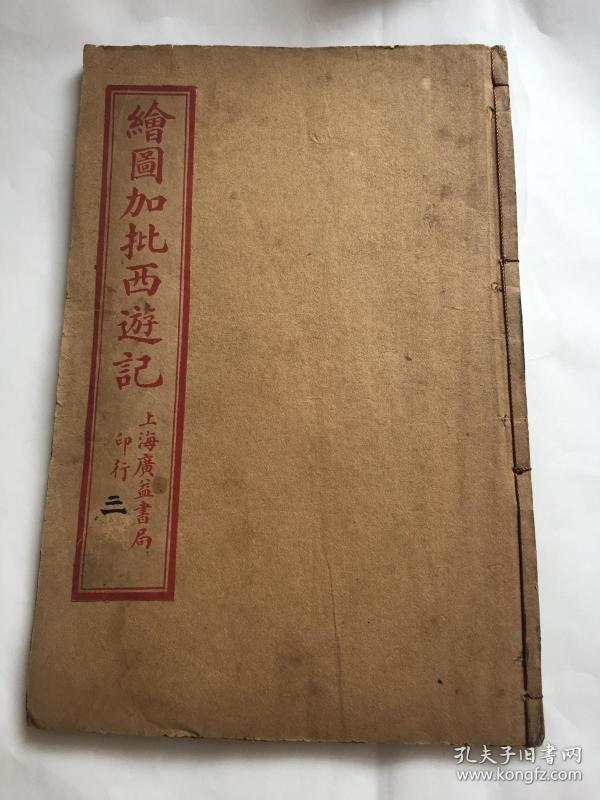 繪圖加批西遊記
上海廣益書局
印行
二
孔夫子旧书网
www.kongfz.com